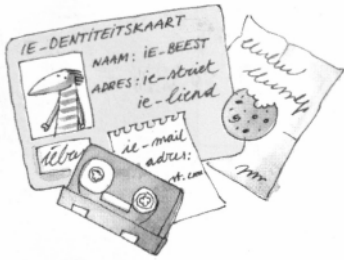 IE-DENTITEITSKAART
NAAM: IE-BEEST
ADRES: ie-striet
ie-liend
ieba
ie-mail
adres:
st.com